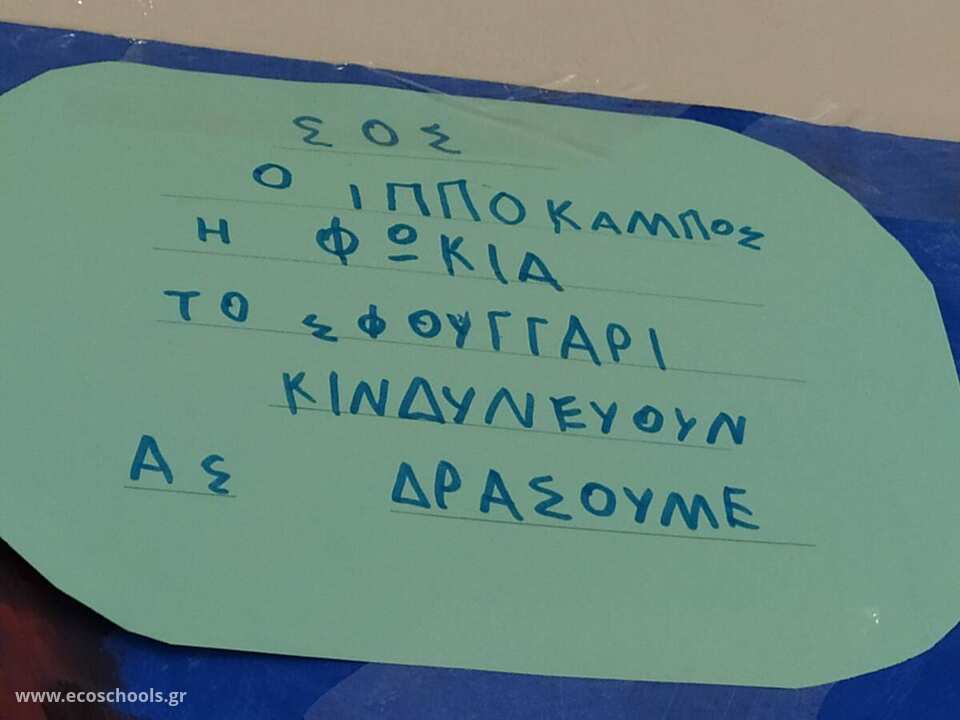 ΣΟΣ
Ο ΙΠΠΟΚΑΜΠΟΣ
Η ΦΩΚΙΑ
ΤΟ ΣΦΟΥΓΓΑΡΙ
ΚΙΝΔΥΝΕΥΟΥΝ
ΑΣ ΔΡΑΣΟΥΜΕ
www.ecoschools.gr